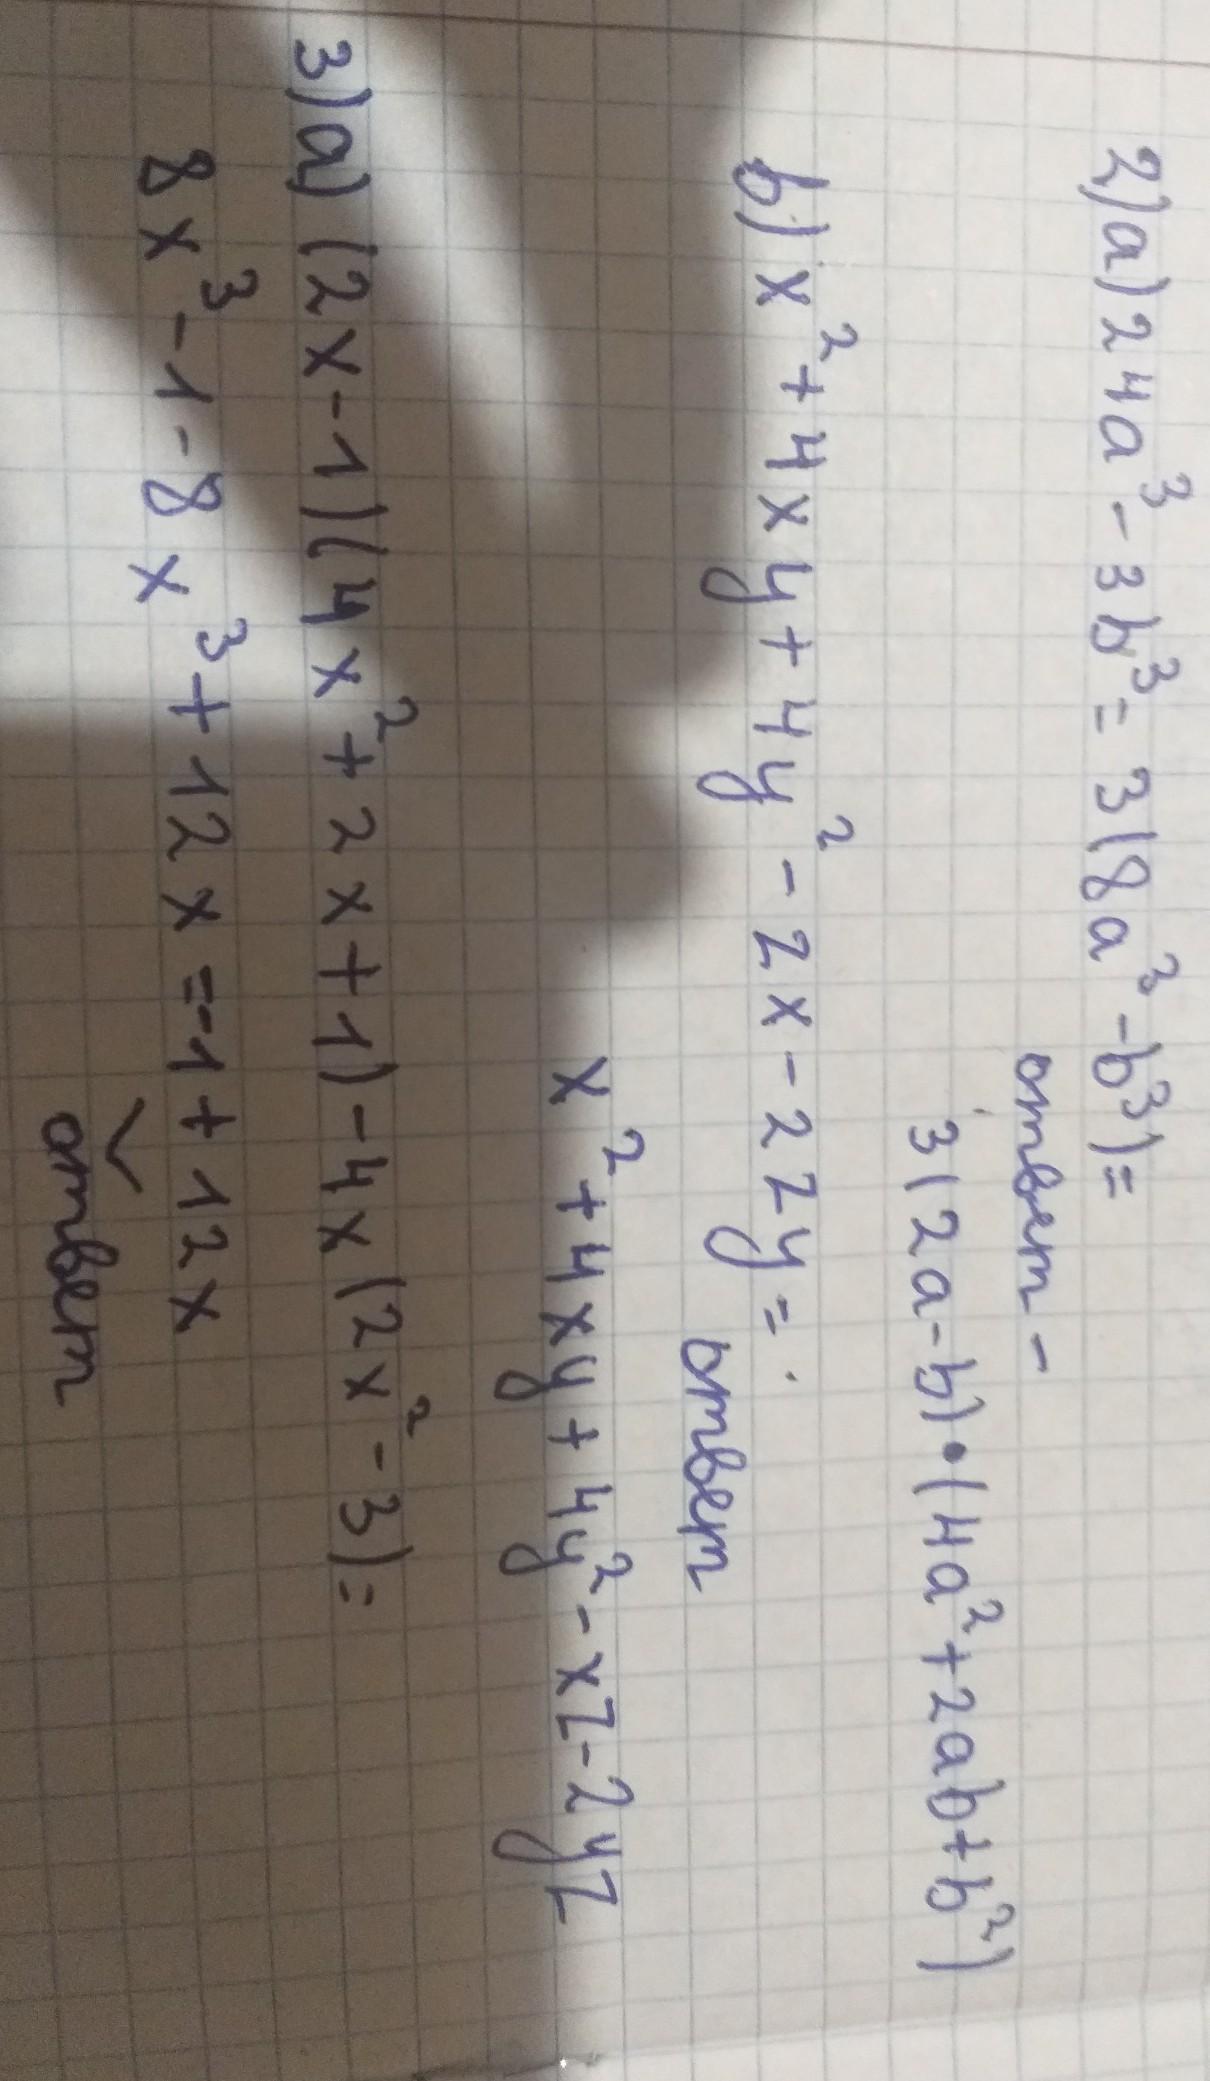 2) a) 24a³ - 3b³ = 3(8a³ - b³) =
ответ -
3(2a-b)•(4a²+2ab+b²)
b) x² + 4xy + 4y² - zx - 2zy =
ответ
x² + 4xy + 4y² - xz - 2yz
3) a) (2x-1)(4x²+2x+1) - 4x(2x²-3) =
8x³ - 1 - 8x³ + 12x = -1 + 12x
ответ